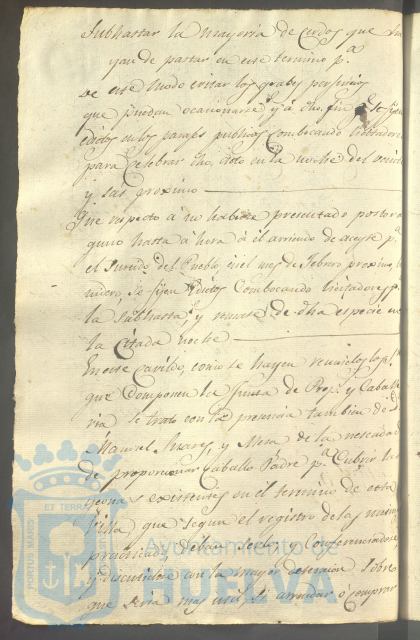 Subhastar la mayoria de Cerdos que ha
yan de pastar en este termino p.a
de este modo evitar los graves perjuicios
que puedan ocacionarse y á dho. fin se fijen
edictos en los parages publicos Combocando
para Celebrar dho. Acto en la noche del veinte
y seis proximo
Que respecto á no haberse presentado postor al
guno hasta ahora á el arriendo de aceyte p.a
el Surtido del Pueblo, en el mes de Febrero proximo ve
nidero, Se fijen Edictos Combocando licitadores p.a
la Subhasta, y remate de dha especie en
la Citada noche
En este Cavildo, como se hayen reunidos los
que Componen la Junta de Prop.s y Caballe
ria se trató con la precencia tambien de D.
Manuel Suarez, y Mora de la necesidad
de proporcionar Caballo Padre p.a Cubrir las
Yeguas existentes en el termino de esta
Villa que segun el registro de las mismas
practicado, deban serlo; y Conferenciandose,
y discutiendose con la mayor detencion Sobre
que seria mas util si arrendar o comprar
PORTUS MARIS
ET TERRAE
Ayuntamiento de
HUELVA